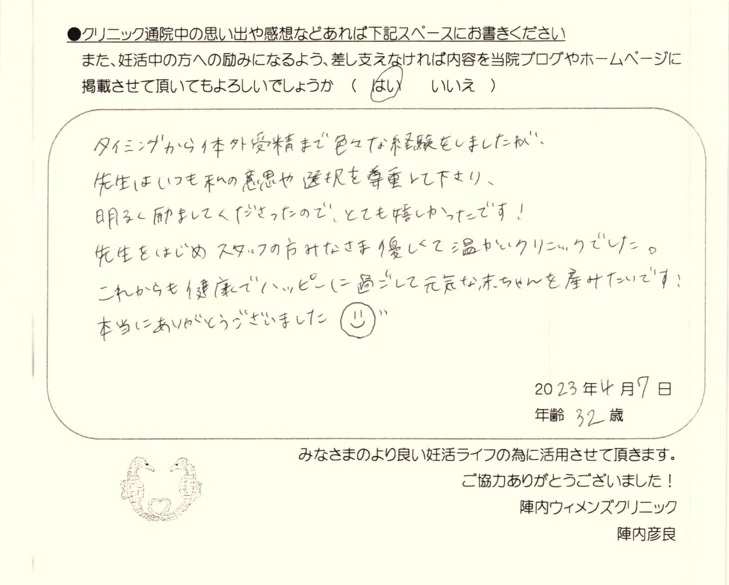 ●クリニック通院中の思い出や感想などあれば下記スペースにお書きください
また、妊活中の方への励みになるよう、差し支えなければ内容を当院ブログやホームページに
掲載させて頂いてもよろしいでしょうか （ はい いいえ ）
タイミングから体外受精まで色々な経験をしましたが、
先生はいつも私の意思や選択を尊重して下さり、
明るく励ましてくださったので、とても嬉しかったです！
先生をはじめスタッフの方みなさま優しくて温かいクリニックでした。
これからも健康でハッピーに過ごして元気な赤ちゃんを産みたいです！
本当にありがとうございました
2023年4月7日
年齢 32歳
みなさまのより良い妊活ライフの為に活用させて頂きます。
ご協力ありがとうございました！
陣内ウィメンズクリニック
陣内彦良